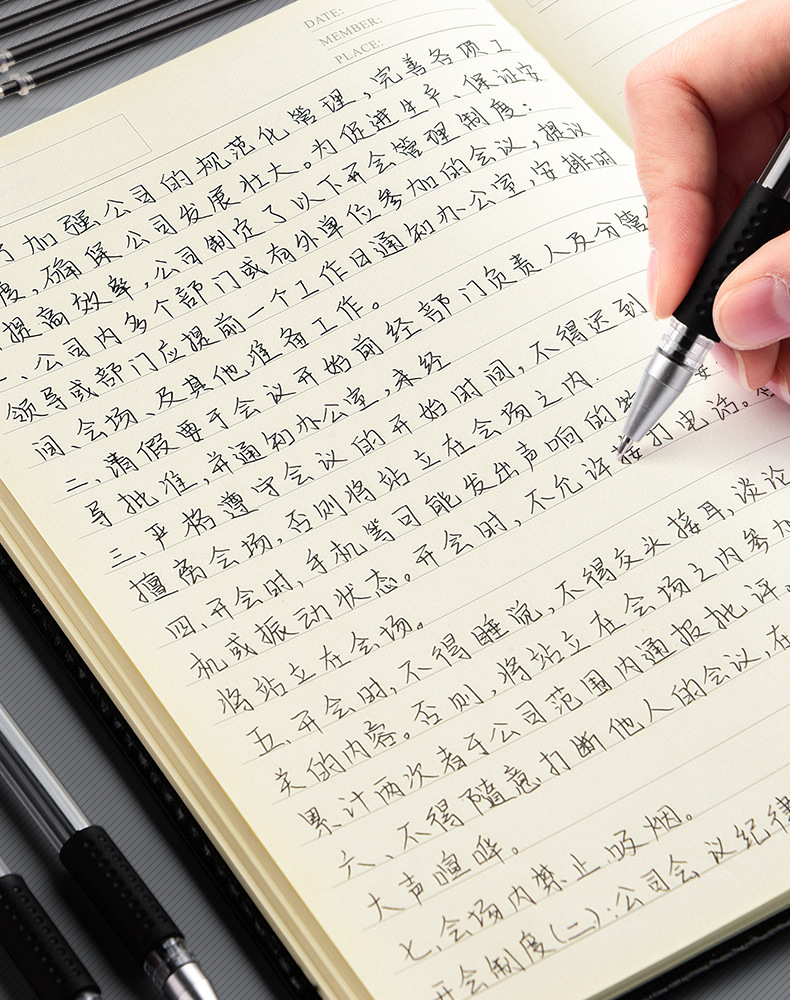 DATE:
MEMBER:
PLACE:
加强公司的规范化管理，完善各项工
度，确保公司发展壮大。为促进生产、保证安
提高效率，公司制定了以下开会管理制度：
一、公司内各个部门或有外单位参加的会议，提议
领导或部门应提前一个工作日通知办公室，安排时
间、会场、及其他准备工作。
二、请假要于会议开始前经部门负责人及分管
导批准，并通知办公室，未经
三、严格遵守会议的开始时间，不得迟到
擅离会场，否则将站立在会场之内.
四、开会时，手机等可能发出声响的
机或振动状态。开会时，不允许接打电话。
将站立在会场。
五、开会时，不得睡觉，不得交头接耳，谈论
关的内容。否则，将站立在会场之内参加
累计两次者于公司范围内通报批评。
六、不得随意打断他人的会议，在
大声喧哗。
七、会场内禁止吸烟。
开会制度(二)：公司会议纪律